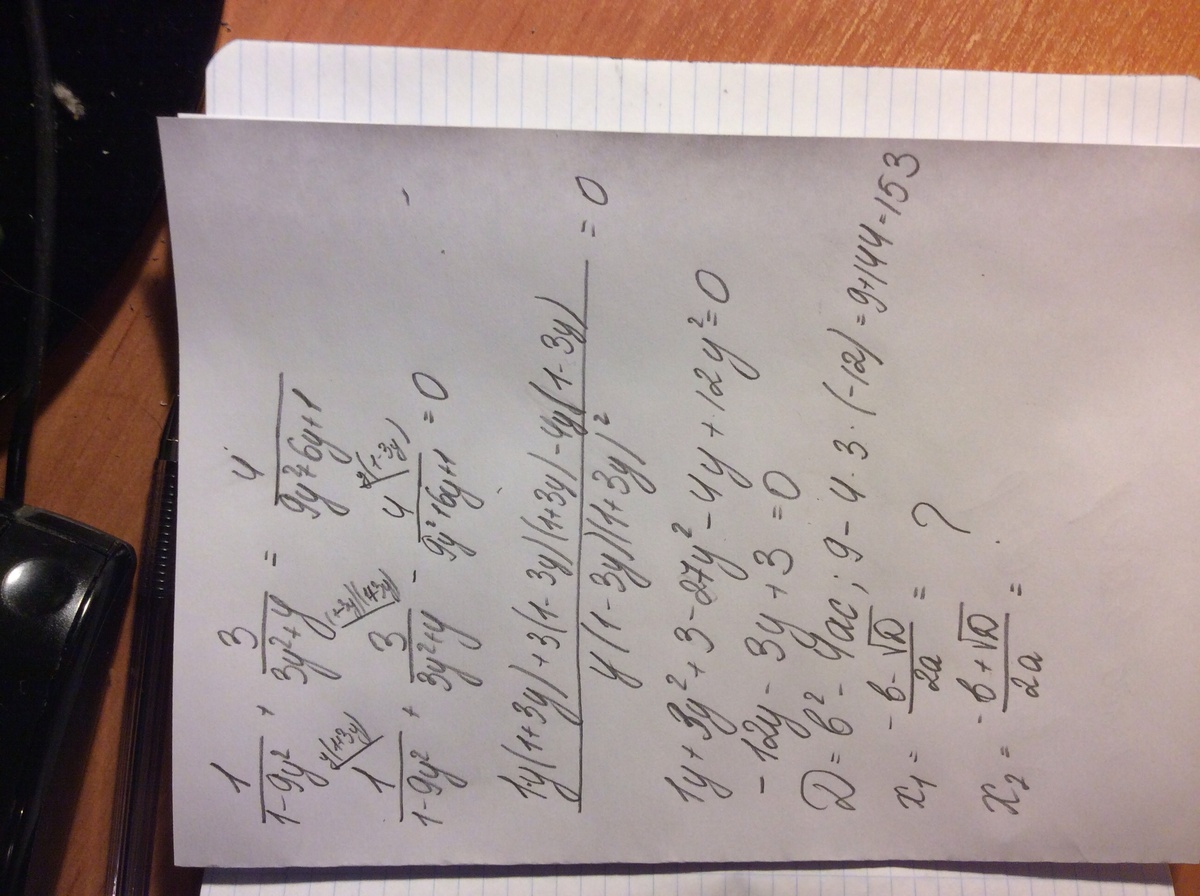 1/(1-9y²) + 3/(3y²+y) = 4/(9y²+6y+1)
1/(1-9y²) y(1+3y) + 3/(3y²+y) (1-3y)(1+3y) - 4/(9y²+6y+1) y(1-3y) = 0
1·y(1+3y)+3(1-3y)(1+3y)-4y(1-3y) / y(1-3y)(1+3y)² = 0
1y+3y²+3-27y²-4y+12y²=0
-12y - 3y + 3 = 0
D = b² - 4ac; 9 - 4·3·(-12) = 9+144=153
x₁ = -b-√D / 2a = ?
x₂ = -b+√D / 2a =